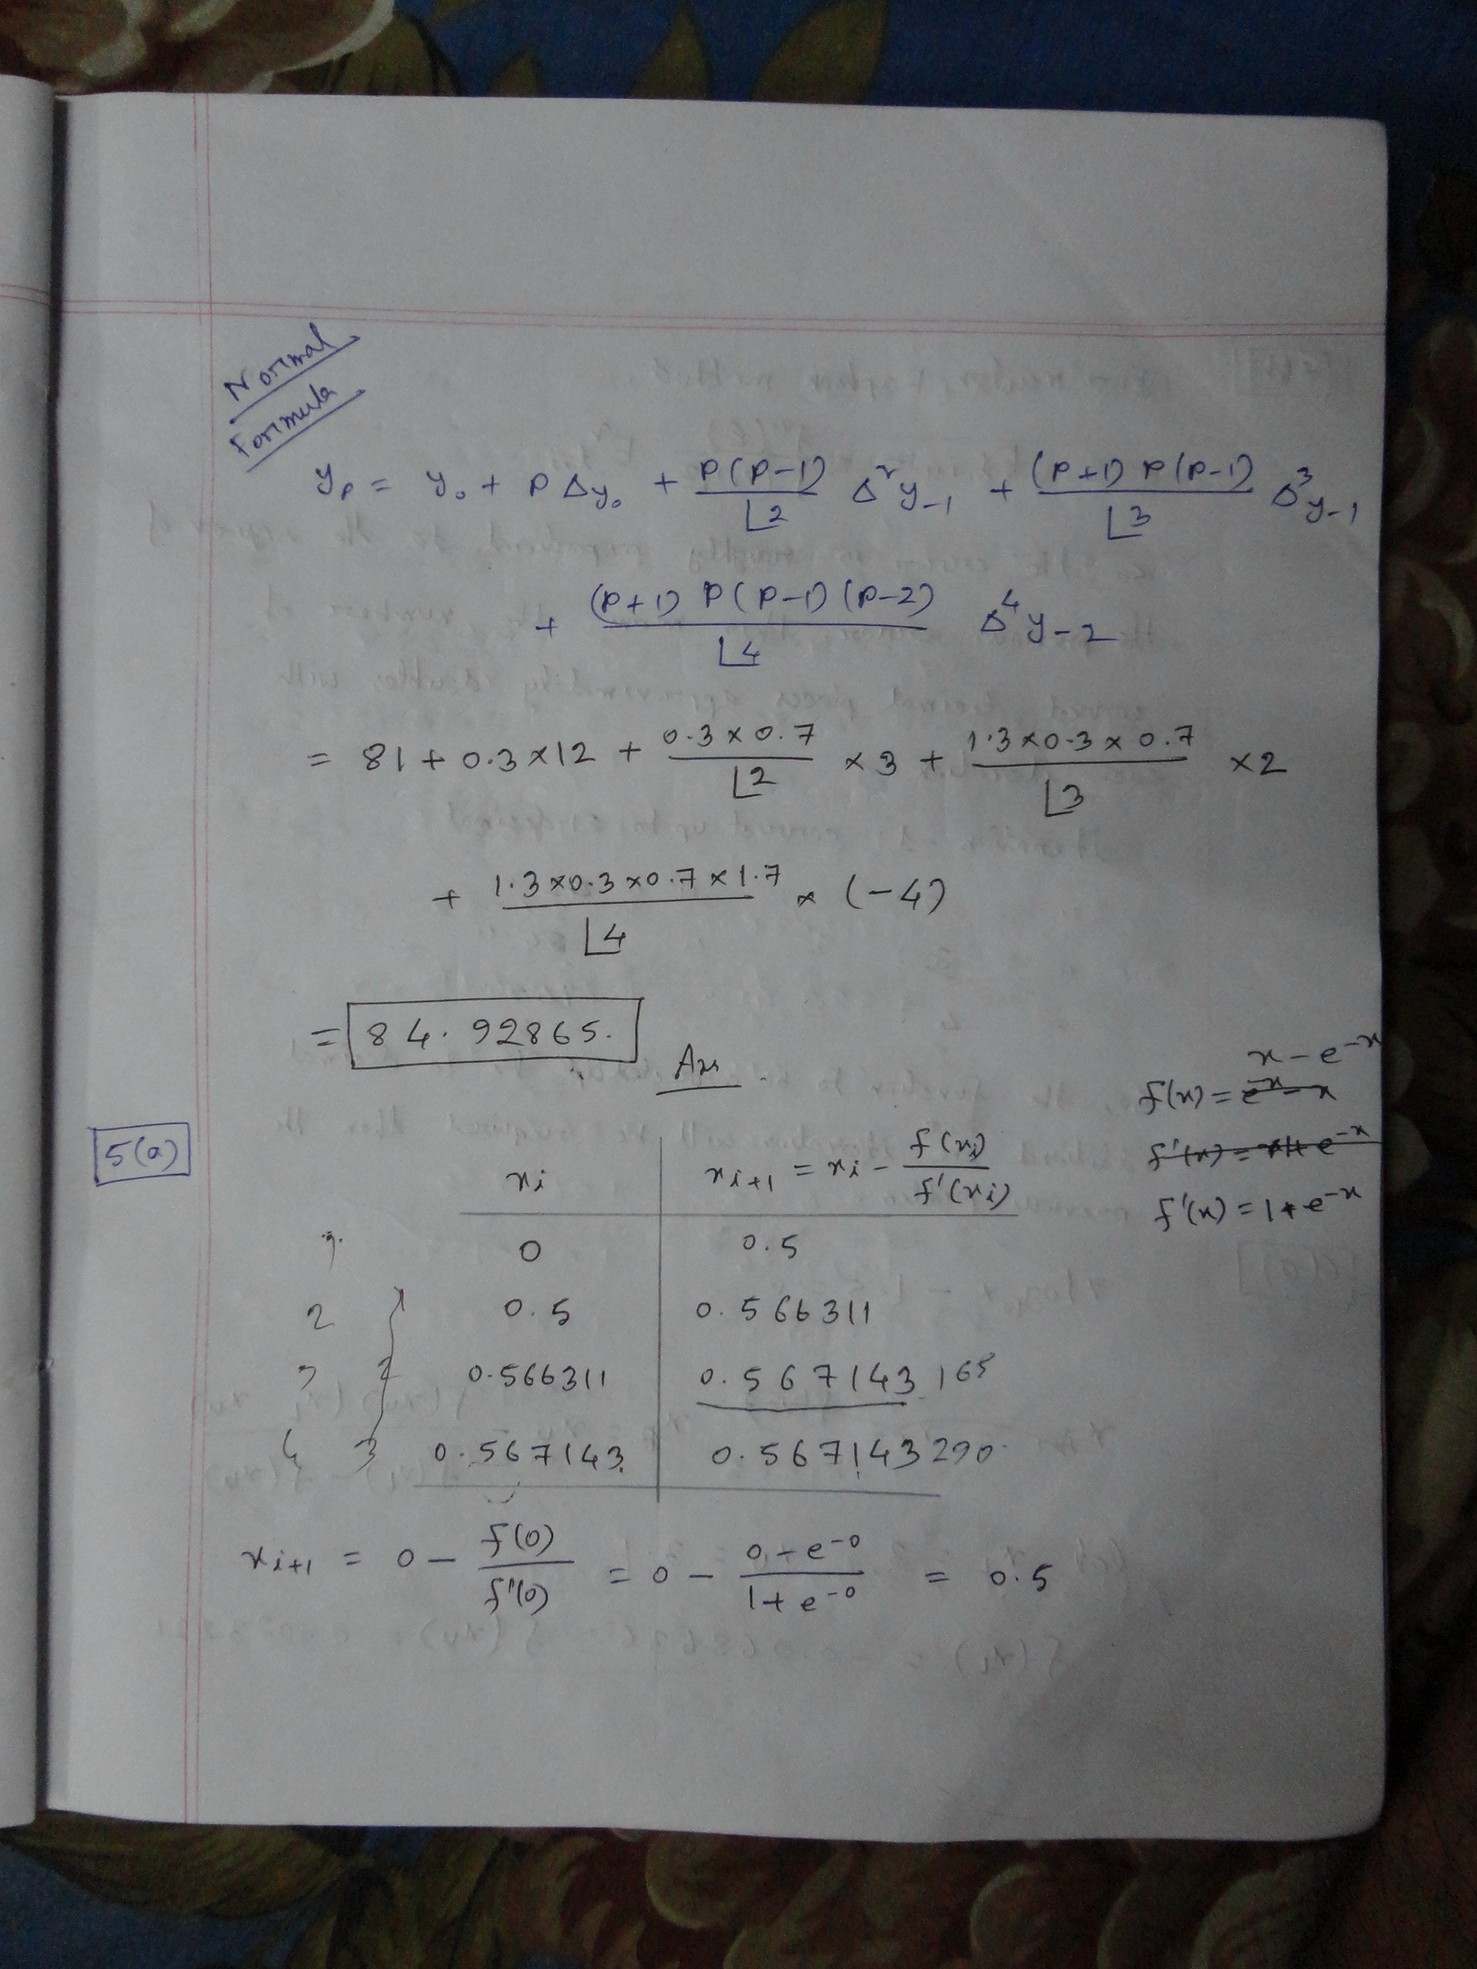 Normal
Formula
yₚ = y₀ + pΔy₀ + p(p-1)/⌊2 Δ²y₋₁ + (p+1)p(p-1)/⌊3 Δ³y₋₁
+ (p+1)p(p-1)(p-2)/⌊4 Δ⁴y₋₂
= 81 + 0.3×12 + 0.3×0.7/⌊2 ×3 + 1.3×0.3×0.7/⌊3 ×2
+ 1.3×0.3×0.7×1.7/⌊4 × (-4)
= 84.92865.
Ans
x - e⁻ˣ
f(x) = e⁻ˣ - x
5(a)
xᵢ xᵢ₊₁ = xᵢ - f(xᵢ)/f'(xᵢ)
f'(x) = 1 + e⁻ˣ
0 0.5
2 1 0.5 0.566311
3 2 0.566311 0.567143165
4 3 0.567143 0.567143290
xᵢ₊₁ = 0 - f(0)/f'(0) = 0 - 0-e⁻⁰/1+e⁻⁰ = 0.5